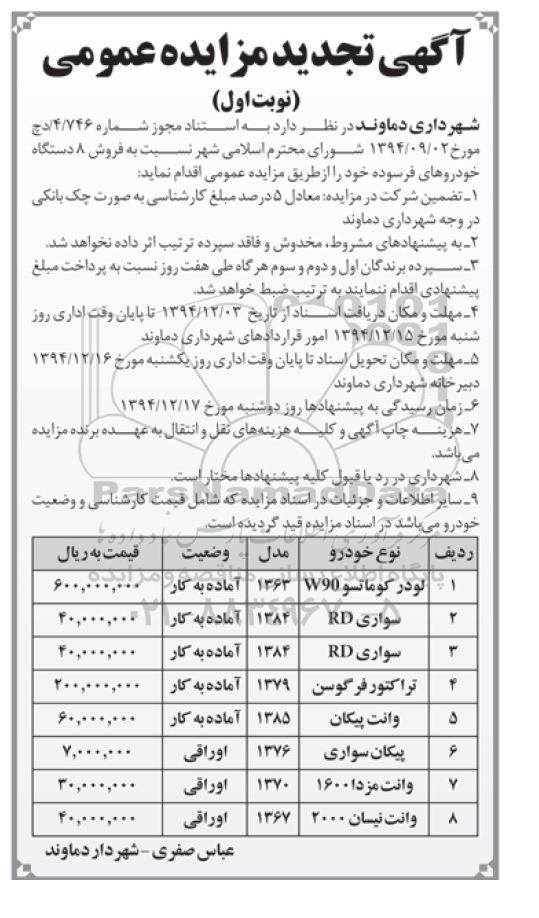 آگهی تجدید مزایده عمومی
(نوبت اول)
شهرداری دماوند در نظر دارد به استناد مجوز شماره ۴/۷۴۶/دچ
مورخ ۱۳۹۴/۰۹/۰۲ شورای محترم اسلامی شهر نسبت به فروش ۸ دستگاه
خودروهای فرسوده خود را از طریق مزایده عمومی اقدام نماید:
۱ـ تضمین شرکت در مزایده: معادل ۵ درصد مبلغ کارشناسی به صورت چک بانکی
در وجه شهرداری دماوند
۲ـ به پیشنهادهای مشروط، مخدوش و فاقد سپرده ترتیب اثر داده نخواهد شد.
۳ـ سپرده برندگان اول و دوم و سوم هرگاه طی هفت روز نسبت به پرداخت مبلغ
پیشنهادی اقدام ننمایند به ترتیب ضبط خواهد شد.
۴ـ مهلت و مکان دریافت اسناد از تاریخ ۱۳۹۴/۱۲/۰۳ تا پایان وقت اداری روز
شنبه مورخ ۱۳۹۴/۱۲/۱۵ امور قراردادهای شهرداری دماوند
۵ـ مهلت و مکان تحویل اسناد تا پایان وقت اداری روز یکشنبه مورخ ۱۳۹۴/۱۲/۱۶
دبیرخانه شهرداری دماوند
۶ـ زمان رسیدگی به پیشنهادها روز دوشنبه مورخ ۱۳۹۴/۱۲/۱۷
۷ـ هزینه چاپ آگهی و کلیه هزینه‌های نقل و انتقال به عهده برنده مزایده
می‌باشد.
۸ـ شهرداری در رد یا قبول کلیه پیشنهادها مختار است.
ParsNamadData
۹ـ سایر اطلاعات و جزئیات در اسناد مزایده که شامل قیمت کارشناسی و وضعیت
خودرو می‌باشد در اسناد مزایده قید گردیده است.
ردیف نوع خودرو مدل وضعیت قیمت به ریال
۱ لودر کوماتسو W90 ۱۳۶۳ آماده به کار ۶۰۰,۰۰۰,۰۰۰
۲ سواری RD ۱۳۸۴ آماده به کار ۴۰,۰۰۰,۰۰۰
۳ سواری RD ۱۳۸۴ آماده به کار ۴۰,۰۰۰,۰۰۰
۴ تراکتور فرگوسن ۱۳۷۹ آماده به کار ۲۰۰,۰۰۰,۰۰۰
۵ وانت پیکان ۱۳۸۵ آماده به کار ۶۰,۰۰۰,۰۰۰
۶ پیکان سواری ۱۳۷۶ اوراقی ۷,۰۰۰,۰۰۰
۷ وانت مزدا ۱۶۰۰ ۱۳۷۰ اوراقی ۳۰,۰۰۰,۰۰۰
۸ وانت نیسان ۲۰۰۰ ۱۳۶۷ اوراقی ۴۰,۰۰۰,۰۰۰
عباس صفری - شهردار دماوند